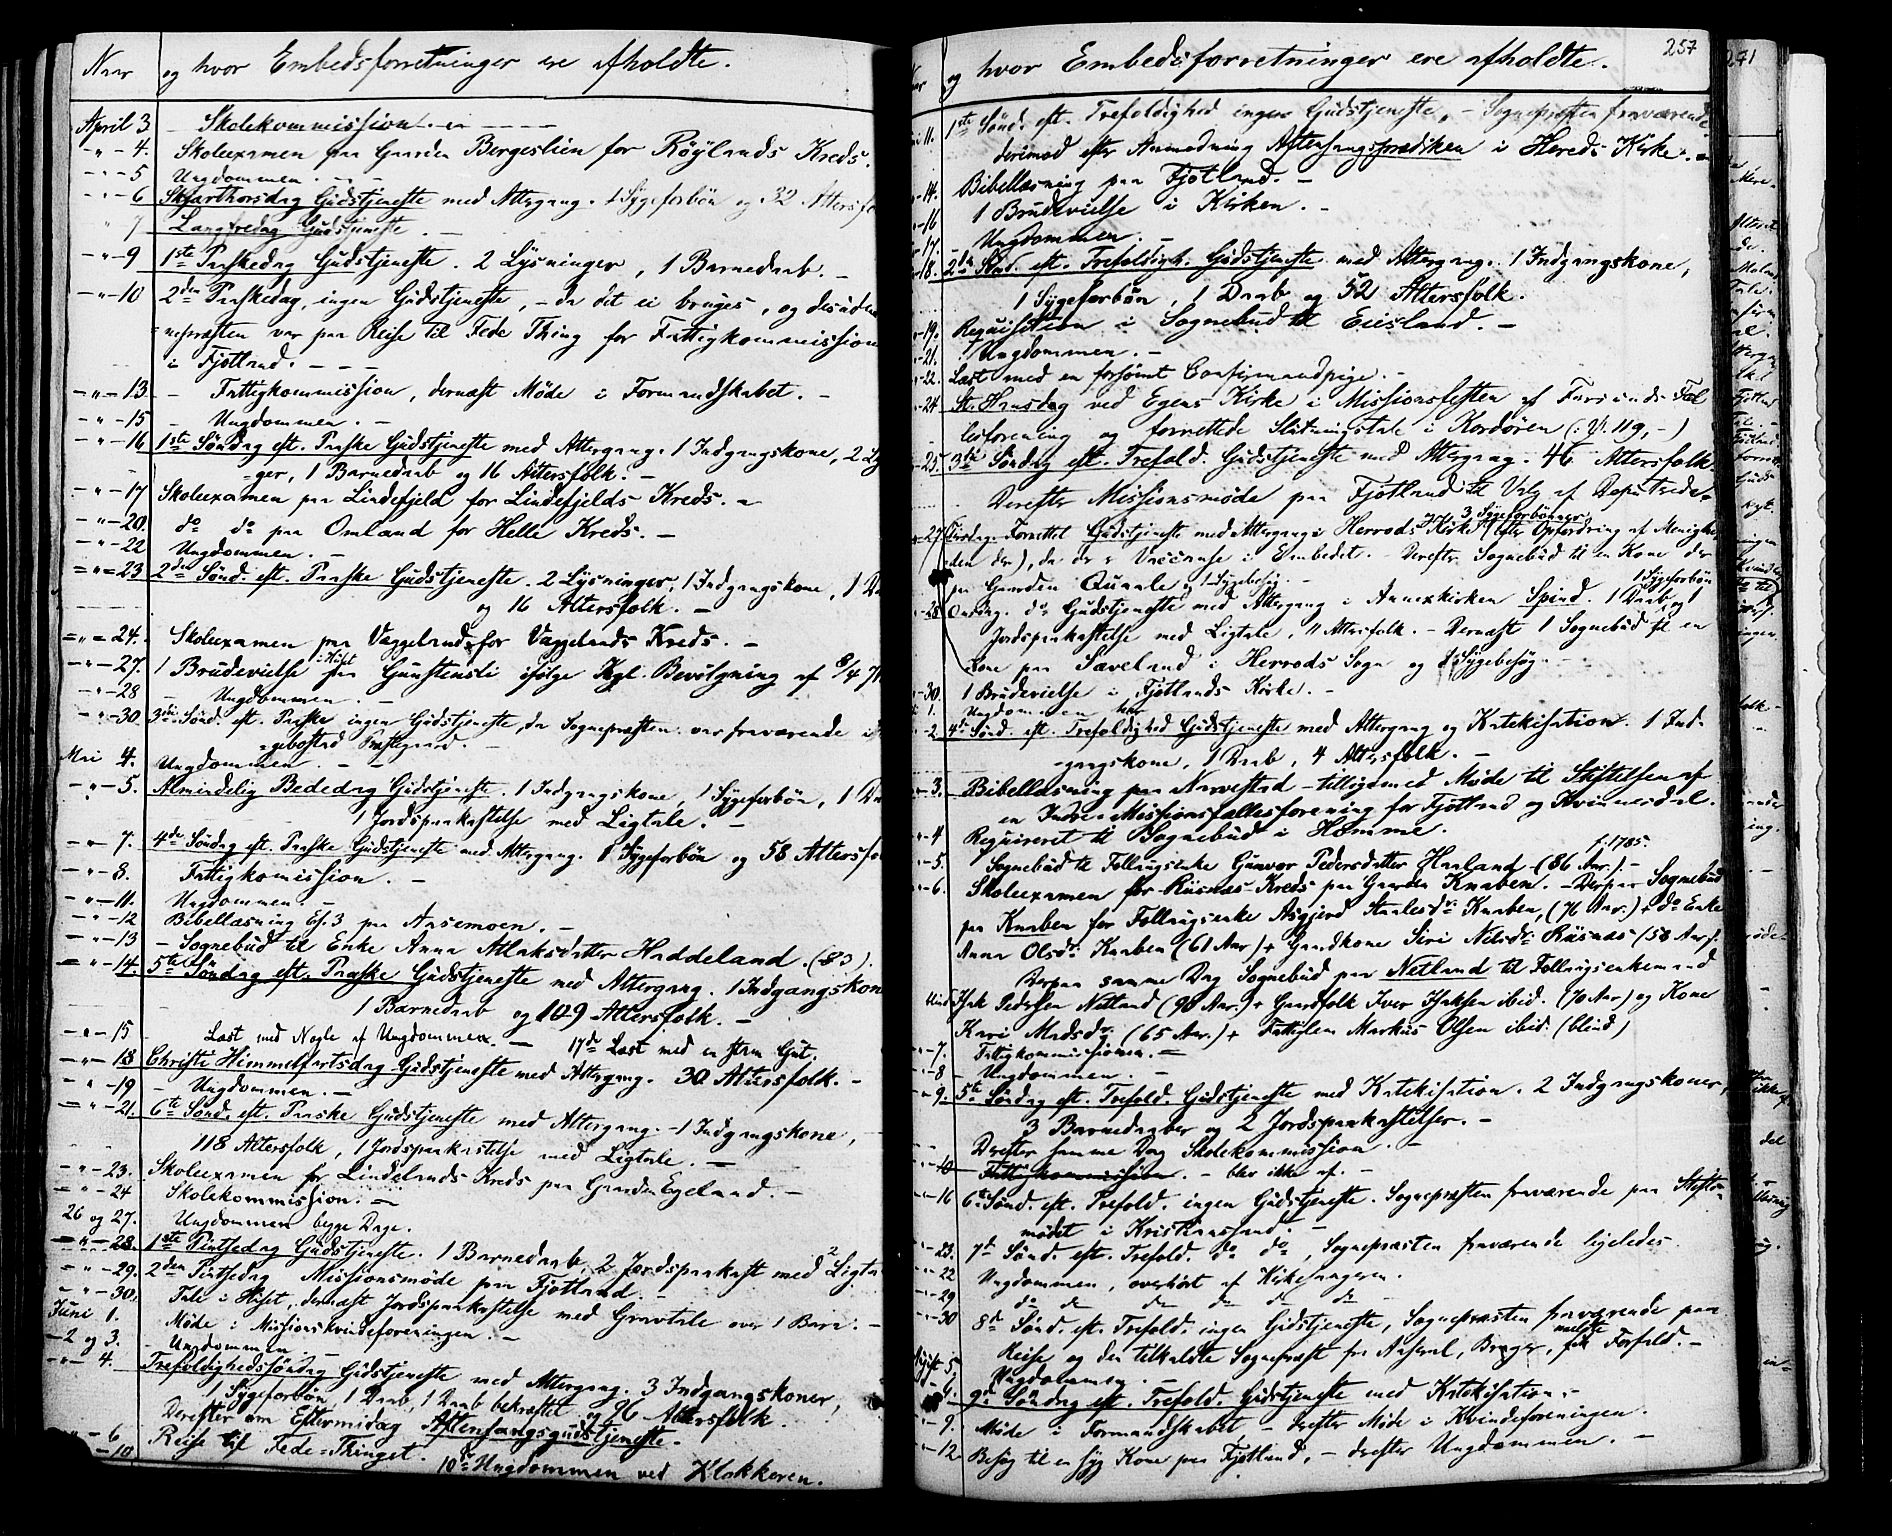 Naar og hvor Embedsforretninger ere afholdte.
April 3 – Skolekommission.
-"- 4. Skoleexamen paa Gaarden Bergeslien for Röylands Kreds.
-"- 5 Ungdommen.
-"- 6 Skjærthorsdag Gudstjeneste med Altergang. 1 Sygeforbön og 32 Altersf
" 7 Langfredag Gudstjeneste.
-"- 9 1ste Paaskedag Gudstjeneste. 2 Lysninger, 1 Barnedaab. –
-"- 10 2den Paaskedag, ingen Gudstjeneste, – da det ei bruges, og desuden
nepræsten var paa Reise til Fede Thing for Fattigkommission
i Fjotland. – – –
-"- 13 – Fattigkommission, dernæst Möde i Formandskabet. –
-"- 15 – Ungdommen. –
-"- 16 1ste Söndag eft. Paaske Gudstjeneste med Altergang. 1 Indgangskone, 2 Ly
ger, 1 Barnedaab og 16 Altersfolk. –
-"- 17 Skoleexamen paa Lindefjeld for Lindefjelds Kreds. –
-"- 20. do do paa Omland for Helle Kreds. –
-"- 22 Ungdommen. –
="= 23 2den Sönd. eft. Paaske Gudstjeneste. 2 Lysninger, 1 Indgangskone, 1 Da
og 16 Altersfolk. –
="= 24. Skoleexamen paa Vaggeland for Vaggelands Kreds. –
-"- 27. 1 Brudevielse i Huset paa Gunstensli ifölge Kgl. Bevilgning af 8/4 71
-"- 28 – Ungdommen. –
-"- 30. 3die Sönd. eft. Paaske ingen Gudstjeneste, da Sognepræsten var fraværende i
gebostad Præstegaard. –
Mai 4. Ungdommen. – –
-"- 5. Almindelig Bededag Gudstjeneste. 1 Indgangskone, 1 Sygeforbön, 1 Da
1 Jordspaakastelse med Ligtale. –
-"- 7. 4de Söndag eft. Paaske Gudstjeneste med Altergang. 1 Sygeforbön og 58 Altersfo
-"- 8. Fattigkomission. –
-"- 11. Ungdommen. –
-"- 12 Bibellæsning Ef. 3 paa Aasemoen. –
-"- 13 – Sognebud til Enke Anna Atlaksdatter Haddeland. (83).
="- 14. 5te Söndag eft. Paaske Gudstjeneste med Altergang. 1 Indgangskon
1 Barnedaab og 109 Altersfolk. –
-"- 15 Læst med Nogle af Ungdommen. – 17de Læst med en Gut.
-"- 18 Christi Himmelfartsdag Gudstjeneste med Altergang. 30 Altersfolk. –
-"- 19 – Ungdommen. –
="- 21. 6te Sönd. eft. Paaske Gudstjeneste med Altergang. – 1 Indgangskone,
118 Altersfolk, 1 Jordspaakastelse med Ligtale. –
-"- 23. Skoleexamen for Lindelands Kreds paa Gaarden Egeland. –
="- 24 Skolekommission. –
26 og 27. Ungdommen begge Dage.
="- 28. 1ste Pintsedag Gudstjeneste. 1 Barnedaab, 2 Jordspaakast med 2 Ligta
-"- 29. 2den Pintsedag Missionsmöde paa Fjotland. –
-"- 30. Tale i Huset, dernæst Jordspaakastelse med Gravtale over 1 Barn. –
Juni 1. Möde i Missionskvindeforeningen. –
– 2 og 3. – Ungdommen –
-"- 4. Trefoldighedssöndag Gudstjeneste med Altergang. 3 Indgangskoner,
1 Sygeforbön, 1 Daab, 1 Daab bekræftet og 96 Altersfolk.
Derefter om Eftermidag Aftensangsgudstjeneste.
-"- 6 Reise til Fede-Thinget.
– 10. 10de Ungdommen ved Klokkeren.
257
271
og hvor Embedsforretninger ere afholdte.
11. 1ste Sönd. eft. Trefoldighed ingen Gudstjeneste, – Sognepræsten fraværende
derimod efter Anmodning Aftensangsprædiken i Hereds Kirke. –
-14. Bibellæsning paa Fjotland. –
-16 1 Brudevielse i Kirken. –
-17. Ungdommen. –
-18. 2den Sönd. eft. Trefoldigh. Gudstjeneste med Altergang. 1 Indgangskone,
1 Sygeforbön, 1 Daab og 52 Altersfolk.
-19. Requisition i Sognebud til Eiesland. –
-21. Ungdommen. –
-22. Læst med en forsömt Confirmandpige. –
-24 St. Hansdag ved Egens Kirke i Missionsfesten af Farsunds Fæl
lesforening og forrettede Slutningstale i Kordören (: V. 119, –)
-25. 3die Söndag eft. Trefold. Gudstjeneste med Altergang. 46 Altersfolk.
Derefter Missionsmöde paa Fjotland til Valg af Deputerede.
-27. Tirsdag. Forrettet Gudstjeneste med Altergang i Herrods Kirke og 3 Sygeforbönner (efter Opfordring af Menighe
den der), da der er Vaccanse i Embedet. – Derefter Sognebud til en Kone der
paa Gaarden Qvanle og 1 Sygebesög. –
-28. Onsdag. do Gudstjeneste med Altergang i Annexkirken Spind. 1 Daab, 1 Sygeforbön og 1
Jordspaakastelse med Ligtale, 11 Altersfolk. – Dernæst 1 Sognebud til en
Kone paa Sæveland i Herrods Sogn og 1 Sygebesög. –
-30. 1 Brudevielse i Fjotlands Kirke. –
1. Ungdommen
-2. 4de Sönd. eft. Trefoldighed Gudstjeneste med Altergang og Katekisation. 1 Ind-
gangskone, 1 Daab, 4 Altersfolk. –
-3. Bibellæsning paa Narvestad – tilligemed Möde til Stiftelsen af
en Indre-Missionsfællesforening for Fjotland og Kvinnesdal.
-4 Requireret til Sognebud i Homme.
-5. Sognebud til Follaugsenke Gunvor Pedersdatter Haaland (86 Aar.) – f. 1785.
-6. Skoleexamen for Risnæs Kreds paa Gaarden Knaben. – Derpaa Sognebud
paa Knaben for Follaugsenke Asgjerd Staalesdr. Knaben, (76 Aar.) + do Enke
Anna Olsdr. Knaben (61 Aar) + Gaardkone Siri Nilsdr. Risnæs (58 Aar).
Derpaa samme Dag Sognebud paa Netland til Follaugsenkemand
Isak Pedersen Netland (90 Aar.) + Gaardfolk Iver Isaksen ibid. (70 Aar) og Kone
Kari Madsdr. (65 Aar.) + Fattiglem Markus Olsen ibid. (blind)
-7. Fattigkommissionen. –
-8 – Ungdommen. –
-9. 5te Söndag eft. Trefold. Gudstjeneste med Katekisation. 2 Indgangskoner,
3 Barnedaaber og 2 Jordspaakastelser. –
Derefter samme Dag Skolekommission. –
-10 Fattigkommission. – blev ikke af. –
-16 6te Sönd. eft. Trefold. ingen Gudstjeneste. Sognepræsten fraværende paa Stifts-
mödet i Kristiansand. –
-23. 7de Sönd. eft. Trefold. do do, Sognepræsten fraværende ligeledes.
-22 Ungdommen, overhört af Kirkesangeren.
-29 do do do do do do
-30 8de Sönd. eft. Trefold. ingen Gudstjeneste, Sognepræsten fraværende paa
Reise og den tilkaldte Sognepræst fra Aaseral, Brager, meldte Forfald. –
5 Ungdommen. –
-6. 9de Söndag eft. Trefold. Gudstjeneste med Katekisation. –
-9. Möde i Formandskabet – derefter Möde i Kvindeforeningen.
-12 Besög til en syg Kone paa Fjotland, – derefter Ungdommen. –